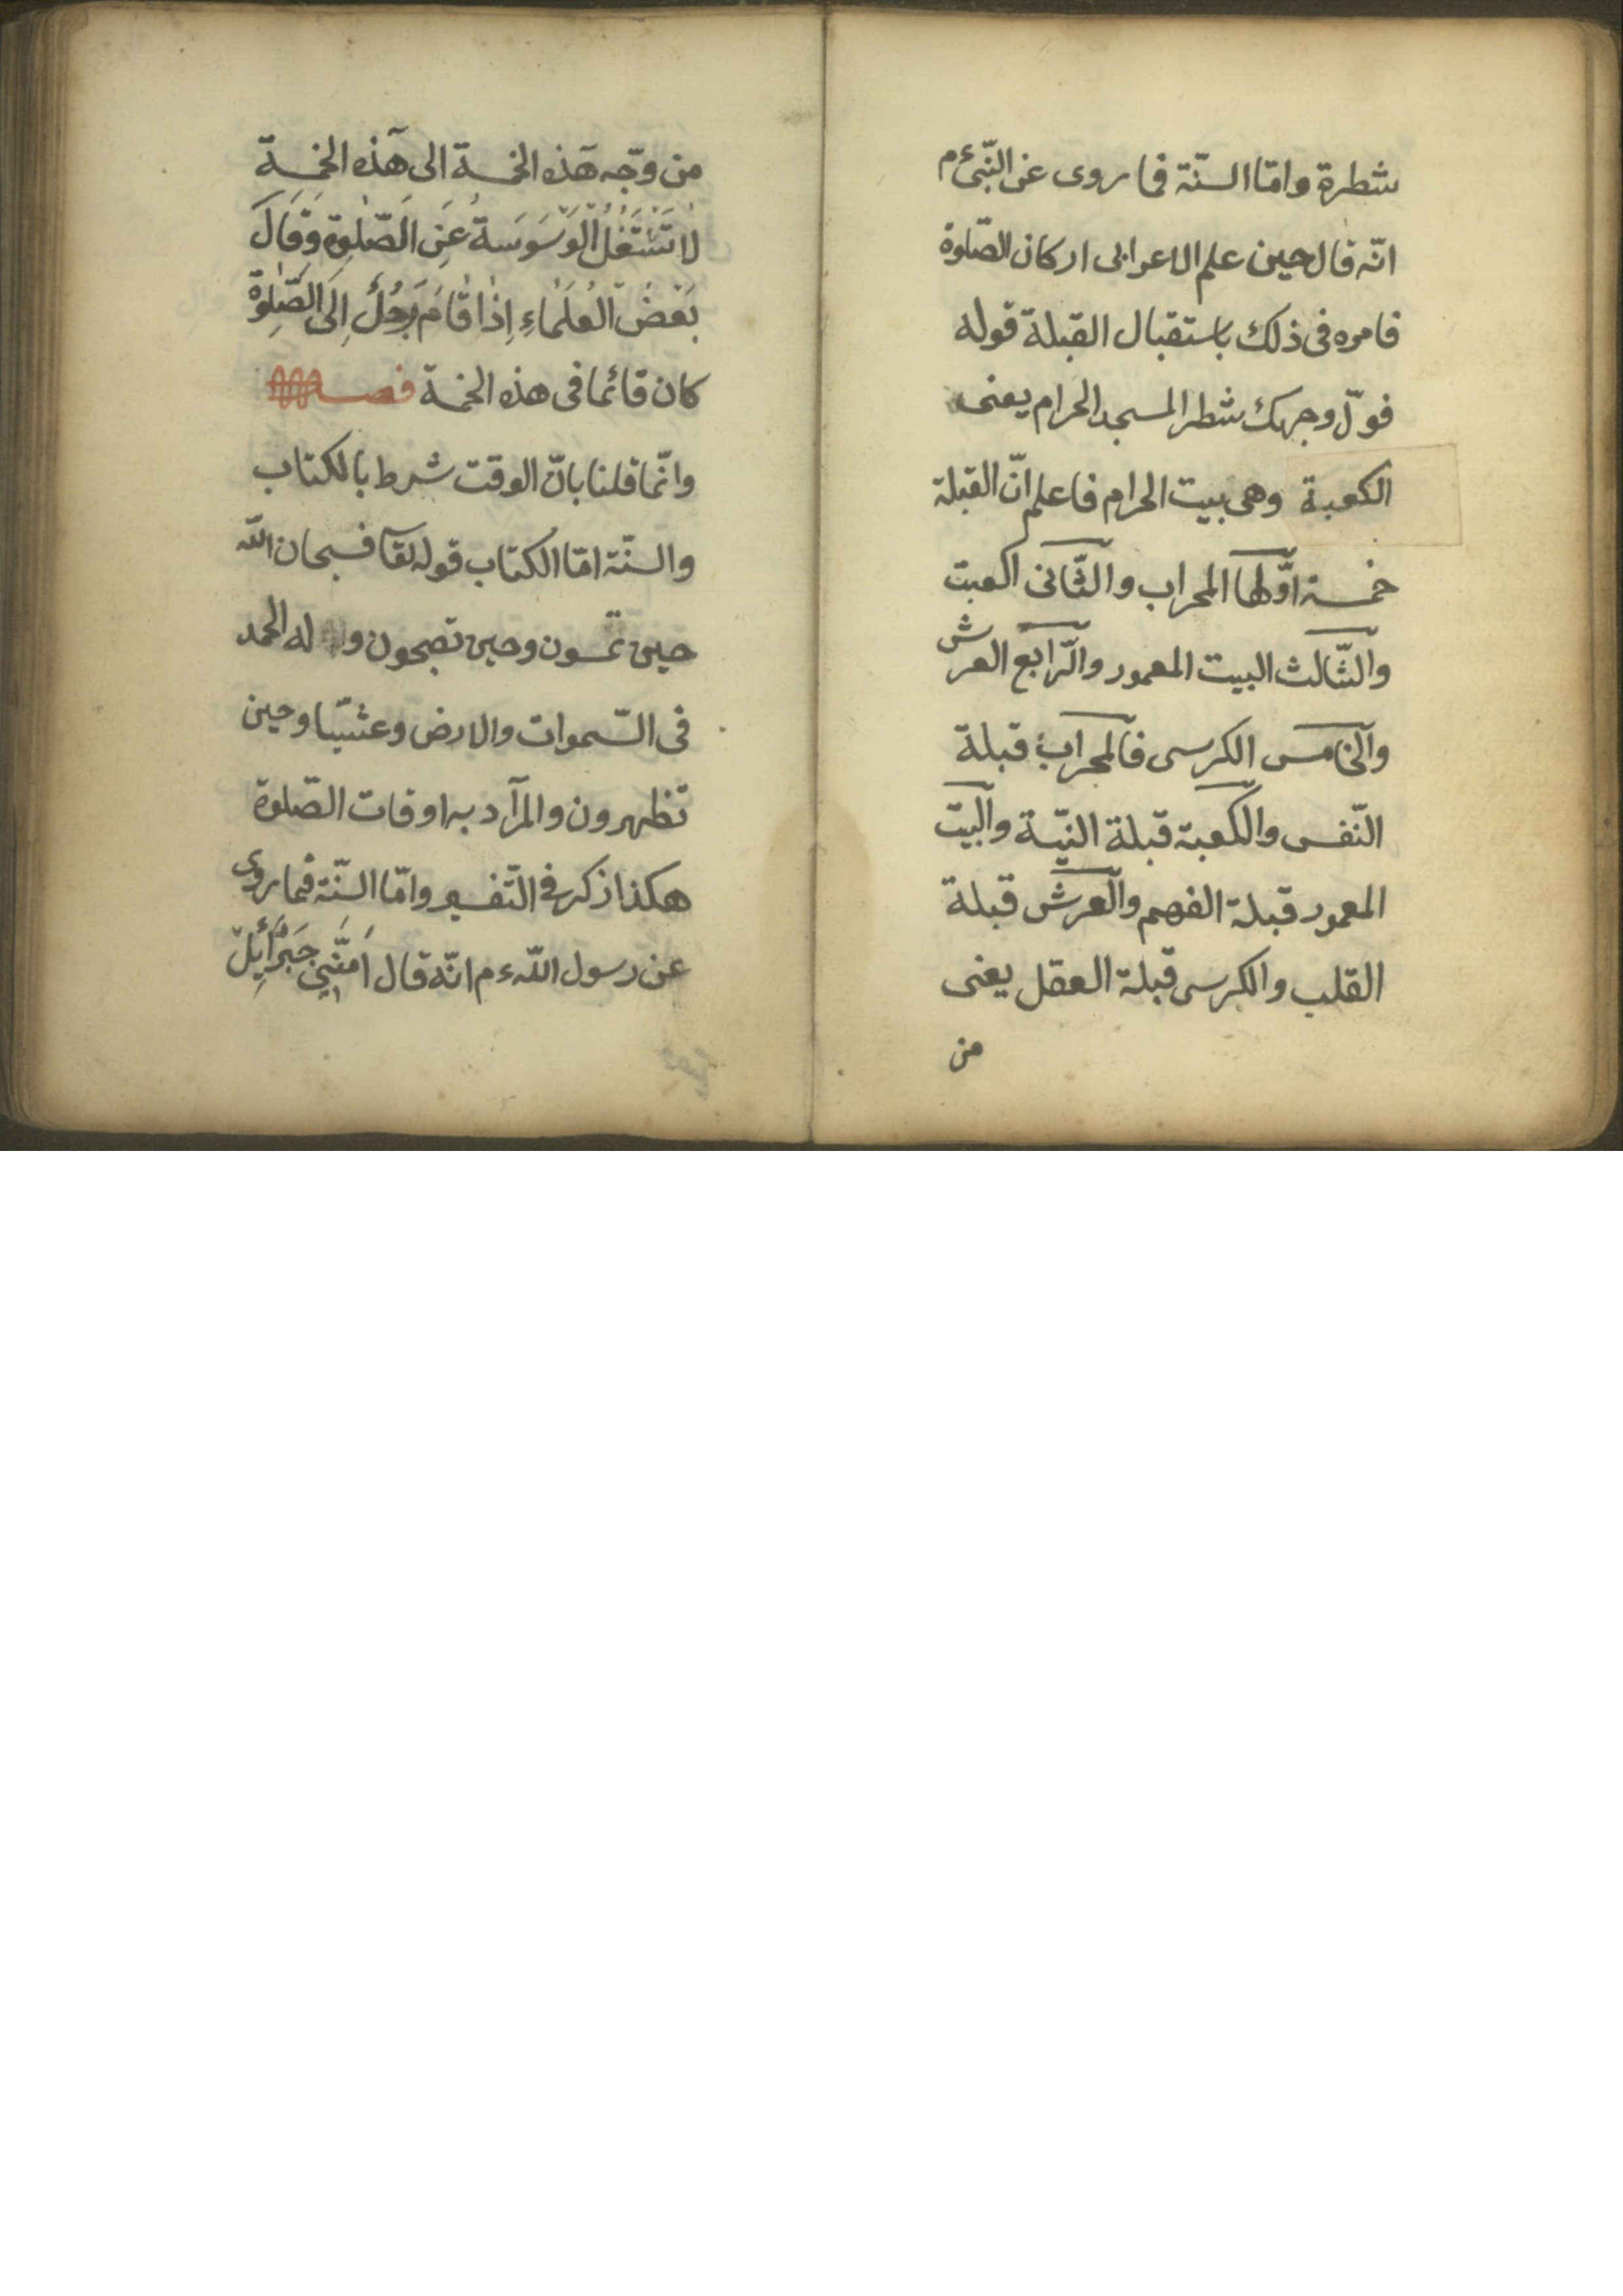 شطرة وامّا السنّة فما روى عن النّبىّ ءم
انّه قال حين علم الاعرابى اركان الصّلوة
فامره فى ذلك باستقبال القبلة قوله
فولّ وجهك شطر المسجد الحرام يعنى
الكعبة وهى بيت الحرام فاعلم انّ القبلة
خمسة اوّلها المحراب والثّانى الكعبت
والثّالث البيت المعمور والرّابع العرش
والخامس الكرسى فالمحراب قبلة
النّفس والكعبة قبلة النيّة والبيت
المعمور قبلة الفهم والعرش قبلة
القلب والكرسى قبلة العقل يعنى
من
من وجّه هذه الخمسة الى هذه الخمسة
لَا تَشْتَغُلُ الْوَسْوَسَةُ عَنِ الصَّلٰوةِ وَقَالَ
بَعْضُ الْعُلَمَاءِ اِذَا قَامَ رَجُلٌ اِلَى الصَّلٰوةِ
كان قائما فى هذه الخمسة فصل
وانّما قلنا بانّ الوقت شرط بالكتاب
والسنّة امّا الكتاب قوله تعا فسبحان اللّه
حين تمسون وحين تصبحون و له الحمد
فى السّموات والارض وعشيّا وحين
تظهرون والمراد به اوقات الصّلوة
هكذا ذكر فى التّفسير وامّا السنّة فما روى
عن رسول اللّه ءم انّه قال اَمَّنِي جَبْرَائِلُ